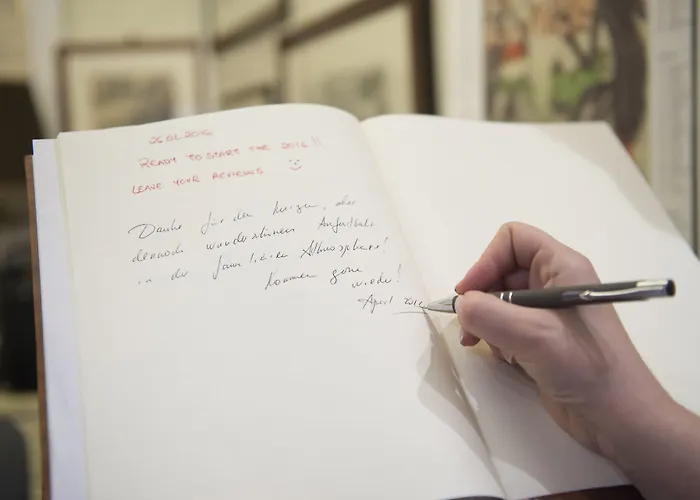 26.01.2016
READY TO START THE 2016 !!
LEAVE YOUR REVIEWS
Danke für den kurzen, aber
dennoch wunderschönen Aufenthalt
in der familiären Athmosphäre!
Kommen gerne
wieder!
April 2016